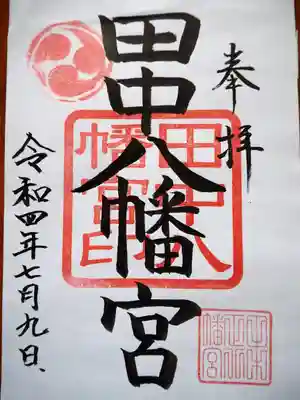 奉拝
田中八幡宮
田中八幡宮印
令和四年七月九日、